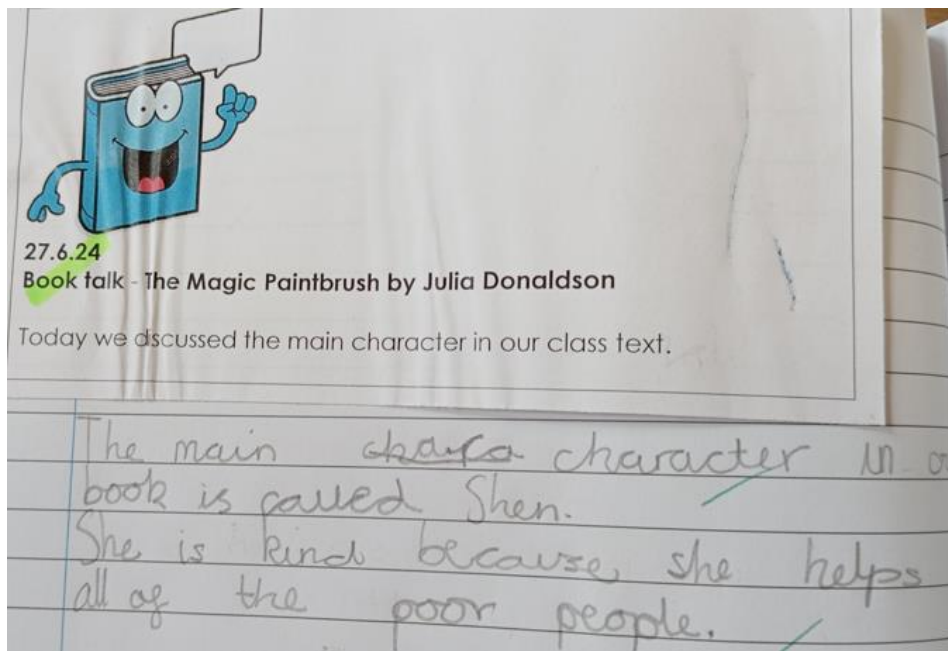 27.6.24
Book talk - The Magic Paintbrush by Julia Donaldson
Today we dscussed the main character in our class text.
The main chara character in
book is called Shen.
She is kind because she helps
all of the poor people.